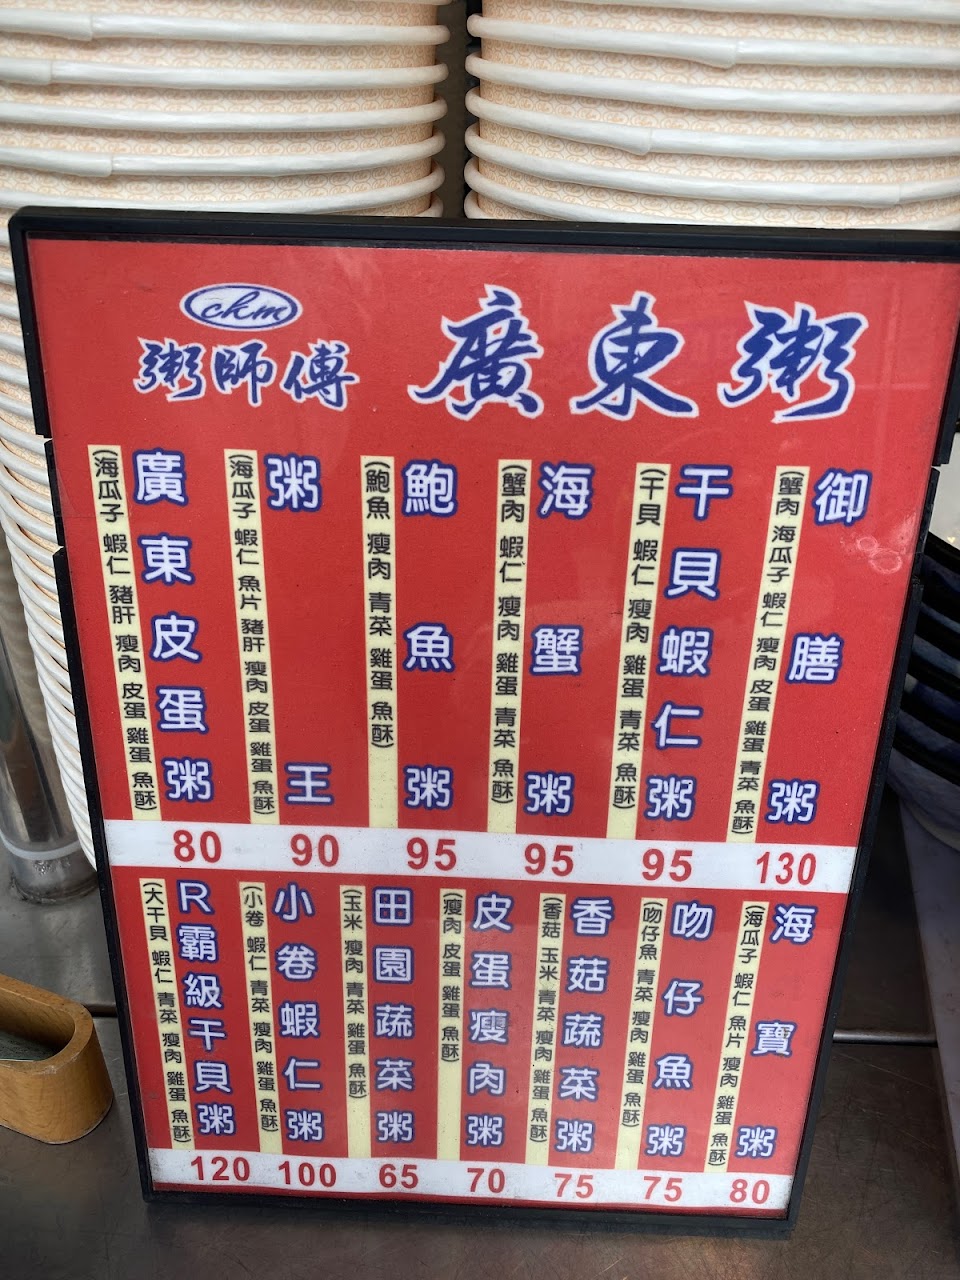 ckm
粥師傅
廣東粥
御膳粥
(蟹肉 海瓜子 蝦仁 瘦肉 皮蛋 雞蛋 青菜 魚酥)
130
干貝蝦仁粥
(干貝 蝦仁 瘦肉 雞蛋 青菜 魚酥)
95
海蟹粥
(蟹肉 蝦仁 瘦肉 雞蛋 青菜 魚酥)
95
鮑魚粥
(鮑魚 瘦肉 青菜 雞蛋 魚酥)
95
粥王
(海瓜子 蝦仁 魚片 豬肝 瘦肉 皮蛋 雞蛋 魚酥)
90
廣東皮蛋粥
(海瓜子 蝦仁 豬肝 瘦肉 皮蛋 雞蛋 魚酥)
80
海寶粥
(海瓜子 蝦仁 魚片 瘦肉 雞蛋 魚酥)
80
吻仔魚粥
(吻仔魚 青菜 瘦肉 雞蛋 魚酥)
75
香菇蔬菜粥
(香菇 玉米 青菜 瘦肉 雞蛋 魚酥)
75
皮蛋瘦肉粥
(瘦肉 皮蛋 雞蛋 魚酥)
70
田園蔬菜粥
(玉米 瘦肉 青菜 雞蛋 魚酥)
65
小卷蝦仁粥
(小卷 蝦仁 青菜 瘦肉 雞蛋 魚酥)
100
R霸級干貝粥
(大干貝 蝦仁 青菜 瘦肉 雞蛋 魚酥)
120